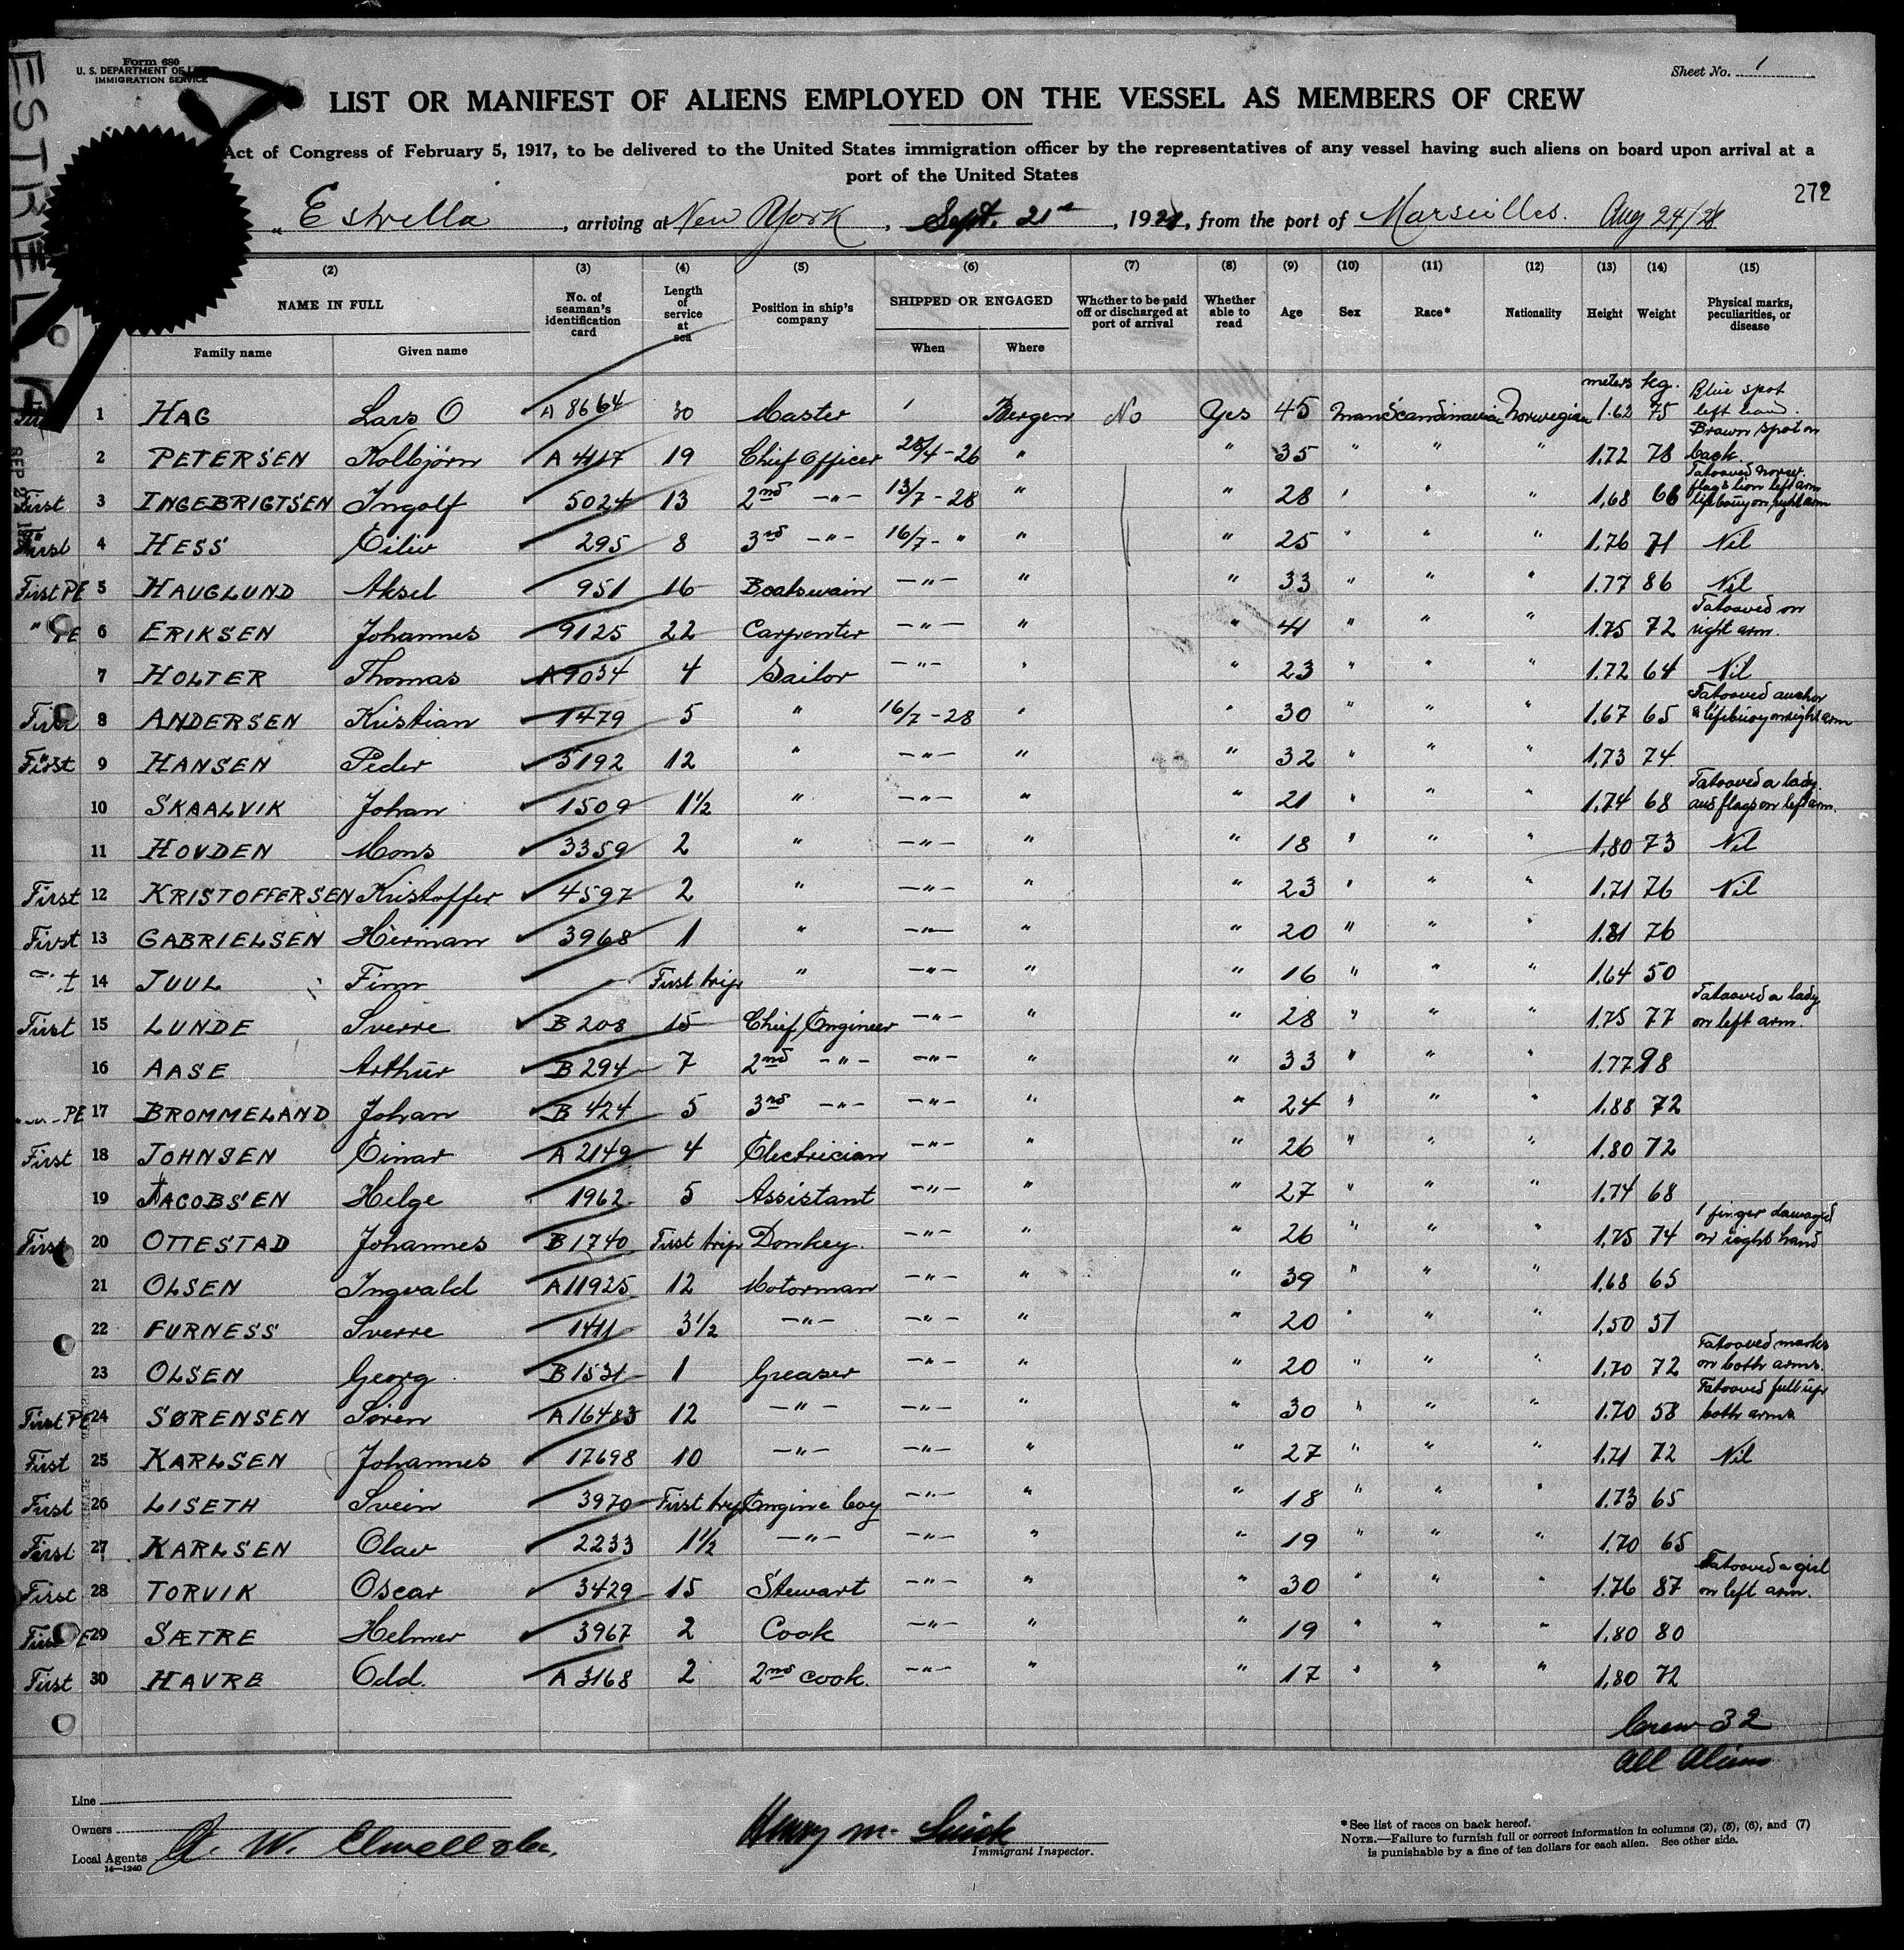 Form 680
U. S. DEPARTMENT OF
IMMIGRATION SERVICE
Sheet No. 1
LIST OR MANIFEST OF ALIENS EMPLOYED ON THE VESSEL AS MEMBERS OF CREW
Act of Congress of February 5, 1917, to be delivered to the United States immigration officer by the representatives of any vessel having such aliens on board upon arrival at a
port of the United States
272
Estrella, arriving at New York, Sept. 21st, 1928, from the port of Marseilles. Aug 24/28
(2) (3) (4) (5) (6) (7) (8) (9) (10) (11) (12) (13) (14) (15)
NAME IN FULL
Family name Given name
No. of seaman's identification card
Length of service at sea
Position in ship's company
SHIPPED OR ENGAGED
When Where
Whether to be paid off or discharged at port of arrival
Whether able to read
Age Sex Race* Nationality Height Weight
Physical marks, peculiarities, or disease
meters kg.
1 HAG Lars O A 8664 30 Master Bergen No Yes 45 man Scandinavian Norwegian 1.62 75 Blue spot left hand.
2 PETERSEN Kolbjørn A 4117 19 Chief Officer 28/4-26 " " 35 " " " 1,72 78 Brown spot on back.
First 3 INGEBRIGTSEN Ingolf 5024 13 2nd -"- 13/7-28 " " 28 " " " 1,68 66 Tatooved norweg. flag & lion left arm lifebuoy on right arm
First 4 HESS Eiliv 295 8 3rd -"- 16/7-" " " 25 " " " 1,76 71 Nil
First PE 5 HAUGLUND Aksel 951 16 Boatswain -"- " " 33 " " " 1.77 86 Nil
" PE 6 ERIKSEN Johannes 9125 22 Carpenter -"- " " 41 " " " 1.75 72 Tatooved on right arm.
7 HOLTER Thomas A 9034 4 Sailor -"- " " 23 " " " 1.72 64 Nil
First 8 ANDERSEN Kristian 1479 5 " 16/7-28 " " 30 " " " 1,67 65 Tatooved anchor & lifebuoy on right arm
First 9 HANSEN Peder 5192 12 " -"- " " 32 " " " 1,73 74
10 SKAALVIK Johan 1509 1½ " -"- " " 21 " " " 1,74 68 Tatooved a lady and flags on left arm.
11 HOVDEN Mons 3359 2 " -"- " " 18 " " " 1,80 73 Nil
First 12 KRISTOFFERSEN Kristoffer 4597 2 " -"- " " 23 " " " 1.71 76 Nil
First 13 GABRIELSEN Herman 3968 1 " -"- " " 20 " " " 1.81 76
14 JUUL Finn First trip " -"- " " 16 " " " 1.64 50
First 15 LUNDE Sverre B 208 15 Chief Engineer -"- " " 28 " " " 1.75 77 Tatooved a lady on left arm.
16 AASE Arthur B 294 7 2nd -"- -"- " " 33 " " " 1.77 98
PE 17 BROMMELAND Johan B 424 5 3rd -"- -"- " " 24 " " " 1.88 72
First 18 JOHNSEN Einar A 2149 4 Electrician -"- " " 26 " " " 1.80 72
19 JACOBSEN Helge 1962 5 Assistant -"- " " 27 " " " 1.74 68
First 20 OTTESTAD Johannes B 1740 First trip Donkey. -"- " " 26 " " " 1,75 74 1 finger damaged on right hand
21 OLSEN Ingvald A 11925 12 Motorman -"- " " 39 " " " 1,68 65
22 FURNESS Sverre 1411 3½ -"- -"- " " 20 " " " 1,50 51
23 OLSEN Georg B 1531 1 Greaser -"- " " 20 " " " 1.70 72 Tatooved marks on both arms.
First PE 24 SØRENSEN Søren A 16483 12 -"- -"- " " 30 " " " 1.70 58 Tatooved full up both arms
First 25 KARLSEN Johannes 17698 10 -"- -"- " " 27 " " " 1.71 72 Nil
First 26 LISETH Svein 3970 First trip Engine boy -"- " " 18 " " " 1.73 65
First 27 KARLSEN Olav 2233 1½ -"- -"- " " 19 " " " 1.70 65
First 28 TORVIK Oscar 3429 15 Stewart -"- " " 30 " " " 1.76 87 Tatooved a girl on left arm.
First PE 29 SÆTRE Helmer 3967 2 Cook -"- " " 19 " " " 1,80 80
First 30 HAVRE Odd. A 3168 2 2nd cook. -"- " " 17 " " " 1,80 72
Crew 32
All Aliens
Line
Owners
Local Agents A. W. Elwell & Co.
14—1240
Henry M.
Immigrant Inspector.
*See list of races on back hereof.
NOTE.—Failure to furnish full or correct information in columns (2), (5), (6), and (7)
is punishable by a fine of ten dollars for each alien. See other side.